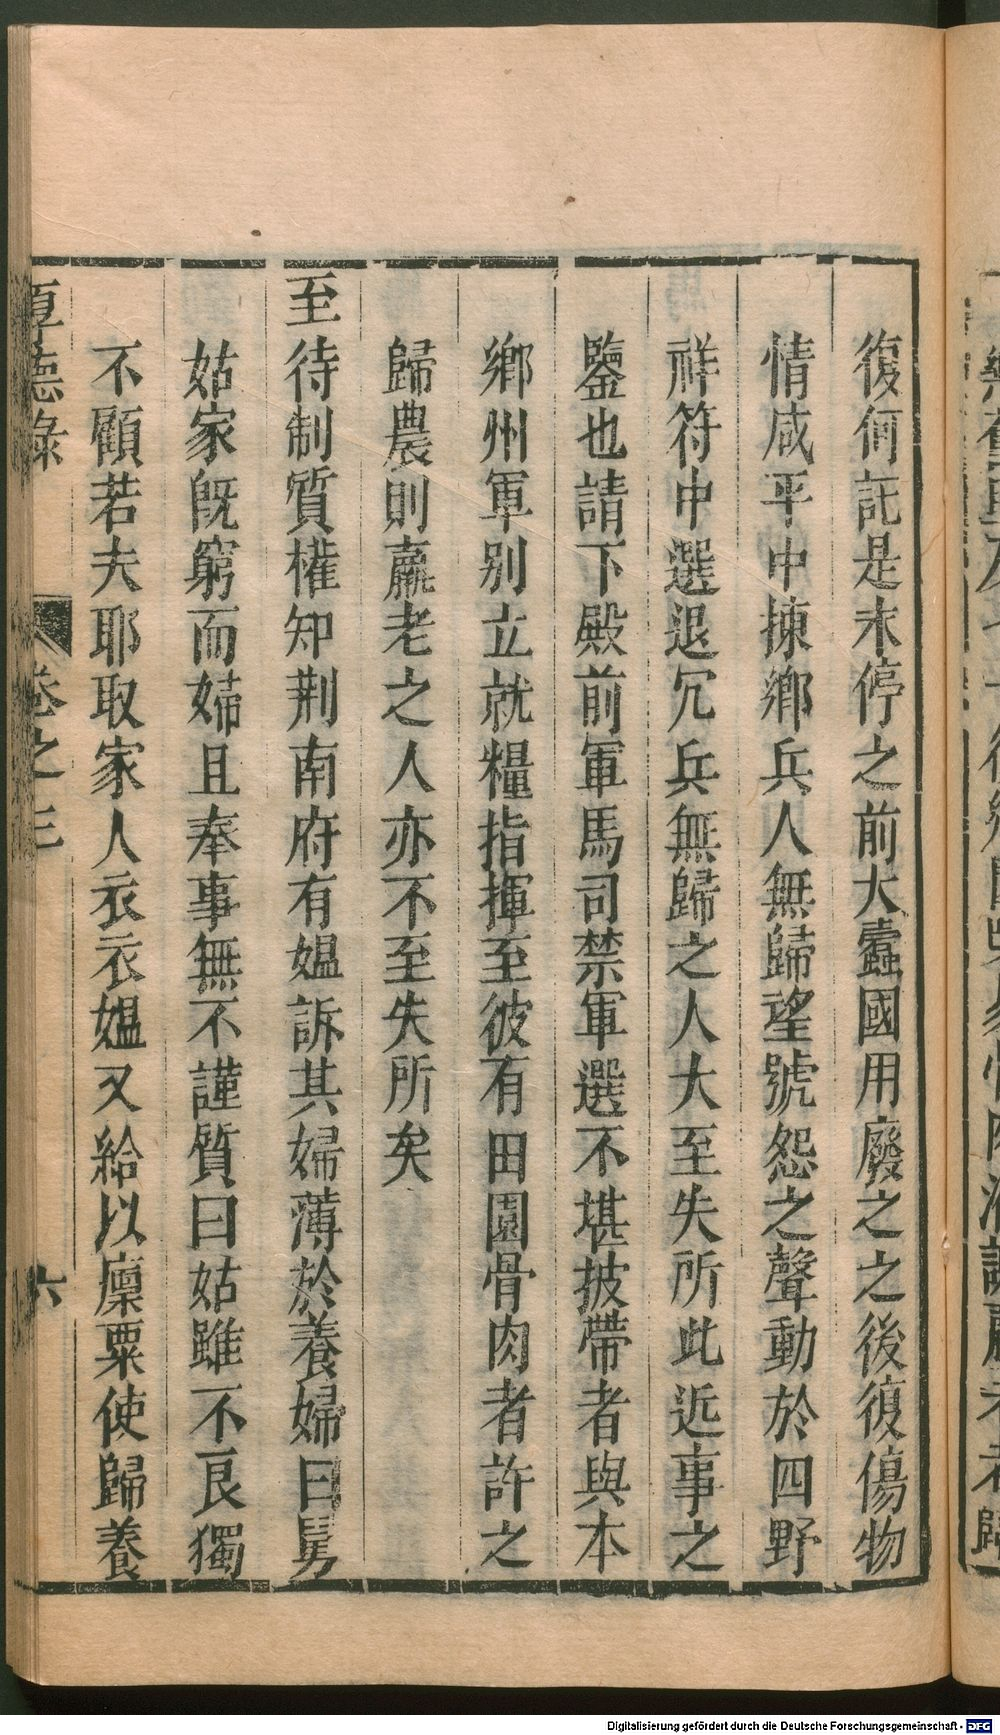 復何託是未停之前大蠹國用廢之之後復傷物
情咸平中揀鄉兵人無歸望號怨之聲動於四野
祥符中選退冗兵無歸之人大至失所此近事之
鑒也請下殿前軍馬司禁軍選不堪披帶者與本
鄉州軍别立就糧指揮至彼有田園骨肉者許之
歸農則羸老之人亦不至失所矣
至待制質權知荆南府有媪訴其婦薄於養婦曰舅
姑家既窮而婦且奉事無不謹質曰姑雖不良獨
不顧若夫耶取家人衣衣媪又給以廩粟使歸養
厚德錄 卷之三 六
Digitalisierung gefördert durch die Deutsche Forschungsgemeinschaft - DFG